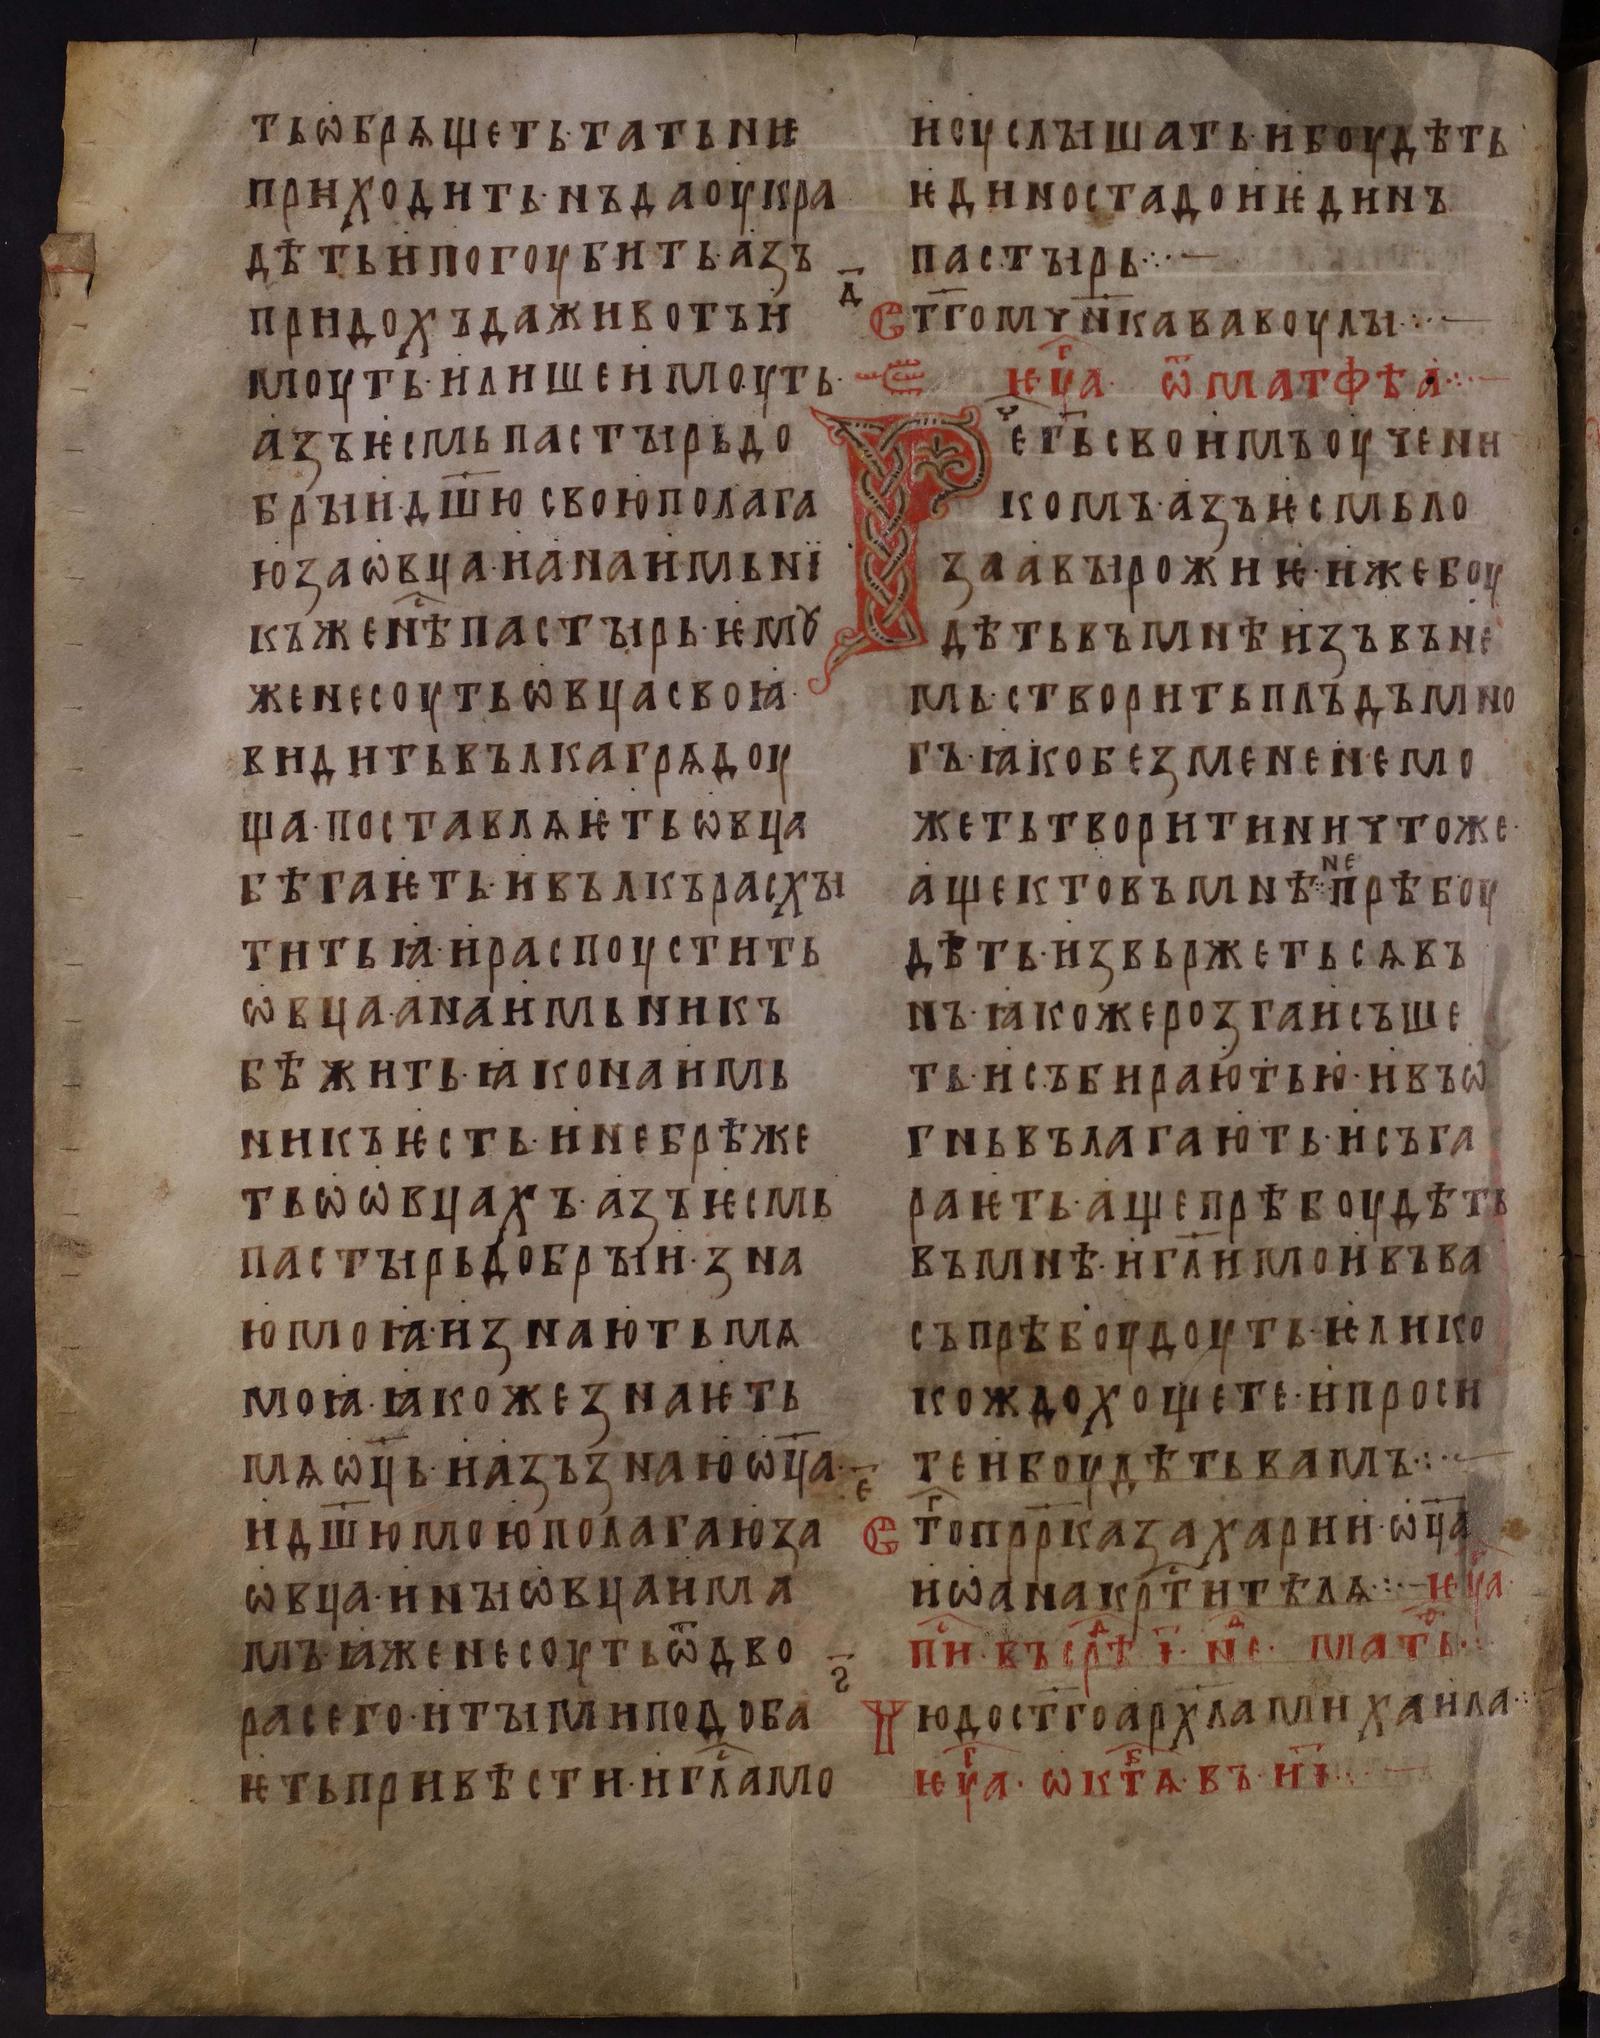 тьѡбрѧщеть·татьнѥ
приходить·нъдаоукра
дѣтьипогоубить·азъ
придохъдаживотъи
моуть·илишеимоуть·
азъѥсмьпастырьдо
брыи·дш҃юсвоюполага
юзаѡвца·анаимьнї
къженѣ҇пастырь·ѥмꙋ
женесоутьѡвцасвоꙗ·
видитьвълкагрѧдоу
ща·поставлѧѥтьѡвца
бѣгаѥть·ивълкърасхы
титьꙗ·ираспоустить
ѡвца·анаимьникъ
бѣжить·ꙗконаимь
никъѥсть·инебрѣже
тьѡѡвцахъ·азъѥсмь
пастырьдобрыи·зна
юмоꙗ·изнаютьмѧ
моꙗ·ꙗкожезнаѥть
мѧѡц҃ь·иазъзнаюѡц҃а·
идш҃юмоюполагаюза
ѡвца·иныѡвцаима
мъ·ꙗженесоутьѿдво
расего·итымиподоба
ѥтьпривѣсти·игл҃амо
исуслышать·ибоудѣть
ѥдиностадоиѥдинъ
пастырь⁘—
д҃
Ст҃гомч҃нкававоулы⁘—
е҃ ѥуⷢ҇а· ѿматфѣа⁘—
Рⷱ҇ег҃ьсвоимъоучени
комъ·азъѥсмьло
заавырожиѥ·ижебоу
дѣтьвъмнѣизъвъне
мь·створитьплъдъмно
гъ·ꙗкобезмененемо
жетьтворитиничтоже·
ащектовъмнѣ·непрѣбоу
дѣть·извьржетьсѧвъ
нъ·ꙗкожерозгаисъше
ть·исъбираютью·ивъѡ
гньвълагають·исъга
раѥть·ащепрѣбоудѣть
въмнѣ·игл҃имоивъва
съпрѣбоудоуть·ѥлико
кождохощете·ипроси
теибоудѣтьвамъ⁘—
е҃
Ст҃гопрⷪ҇рказахарии·ѡц҃а
иѡанакрⷭ҇тителѧ⁘—ѥуⷢ҇а·
пⷭ҇и·въсрⷣѣ·і҃·нⷣе· матⷴ҇ь·:
ѕ҃
Чюдост҃гоархⷢ҇ламихаила⁘
ѥуⷢ҇а· ѡкⷮѧ·въ·и҃і⁘—